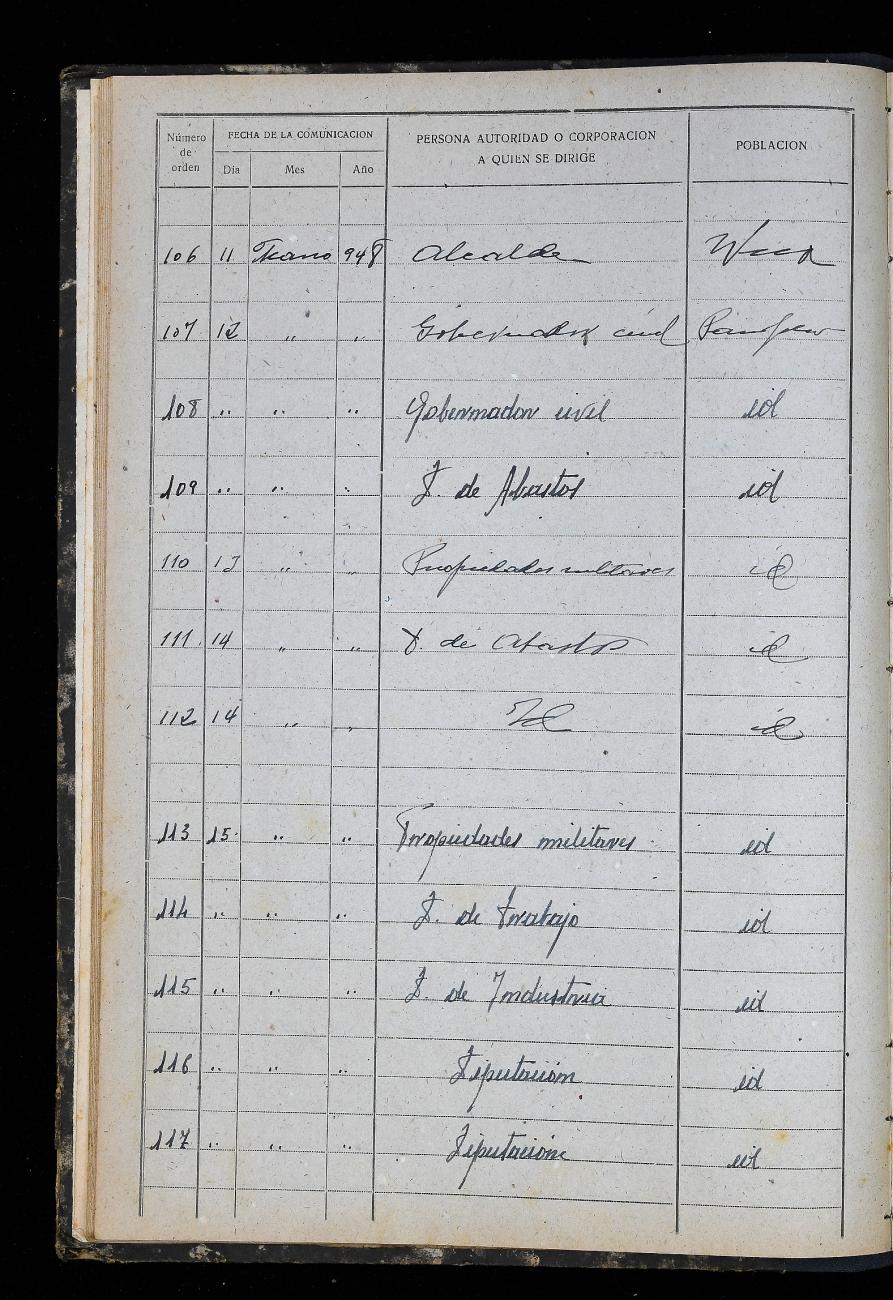 Número de orden FECHA DE LA COMUNICACION Día Mes Año PERSONA AUTORIDAD O CORPORACION A QUIEN SE DIRIGE POBLACION
106 11 948 Alcalde
107 12 " " Gobernador civil Pamplona
108 " " " Gobernador civil id
109 " " " D. de Abastos id
110 13 " " Propiedades militares id
111 14 " " D. de Abastos id
112 14 " " Id id
113 15 " " Propiedades militares id
114 " " " D. de trabajo id
115 " " " D. de Industria id
116 " " " Diputación id
117 " " " Diputación id